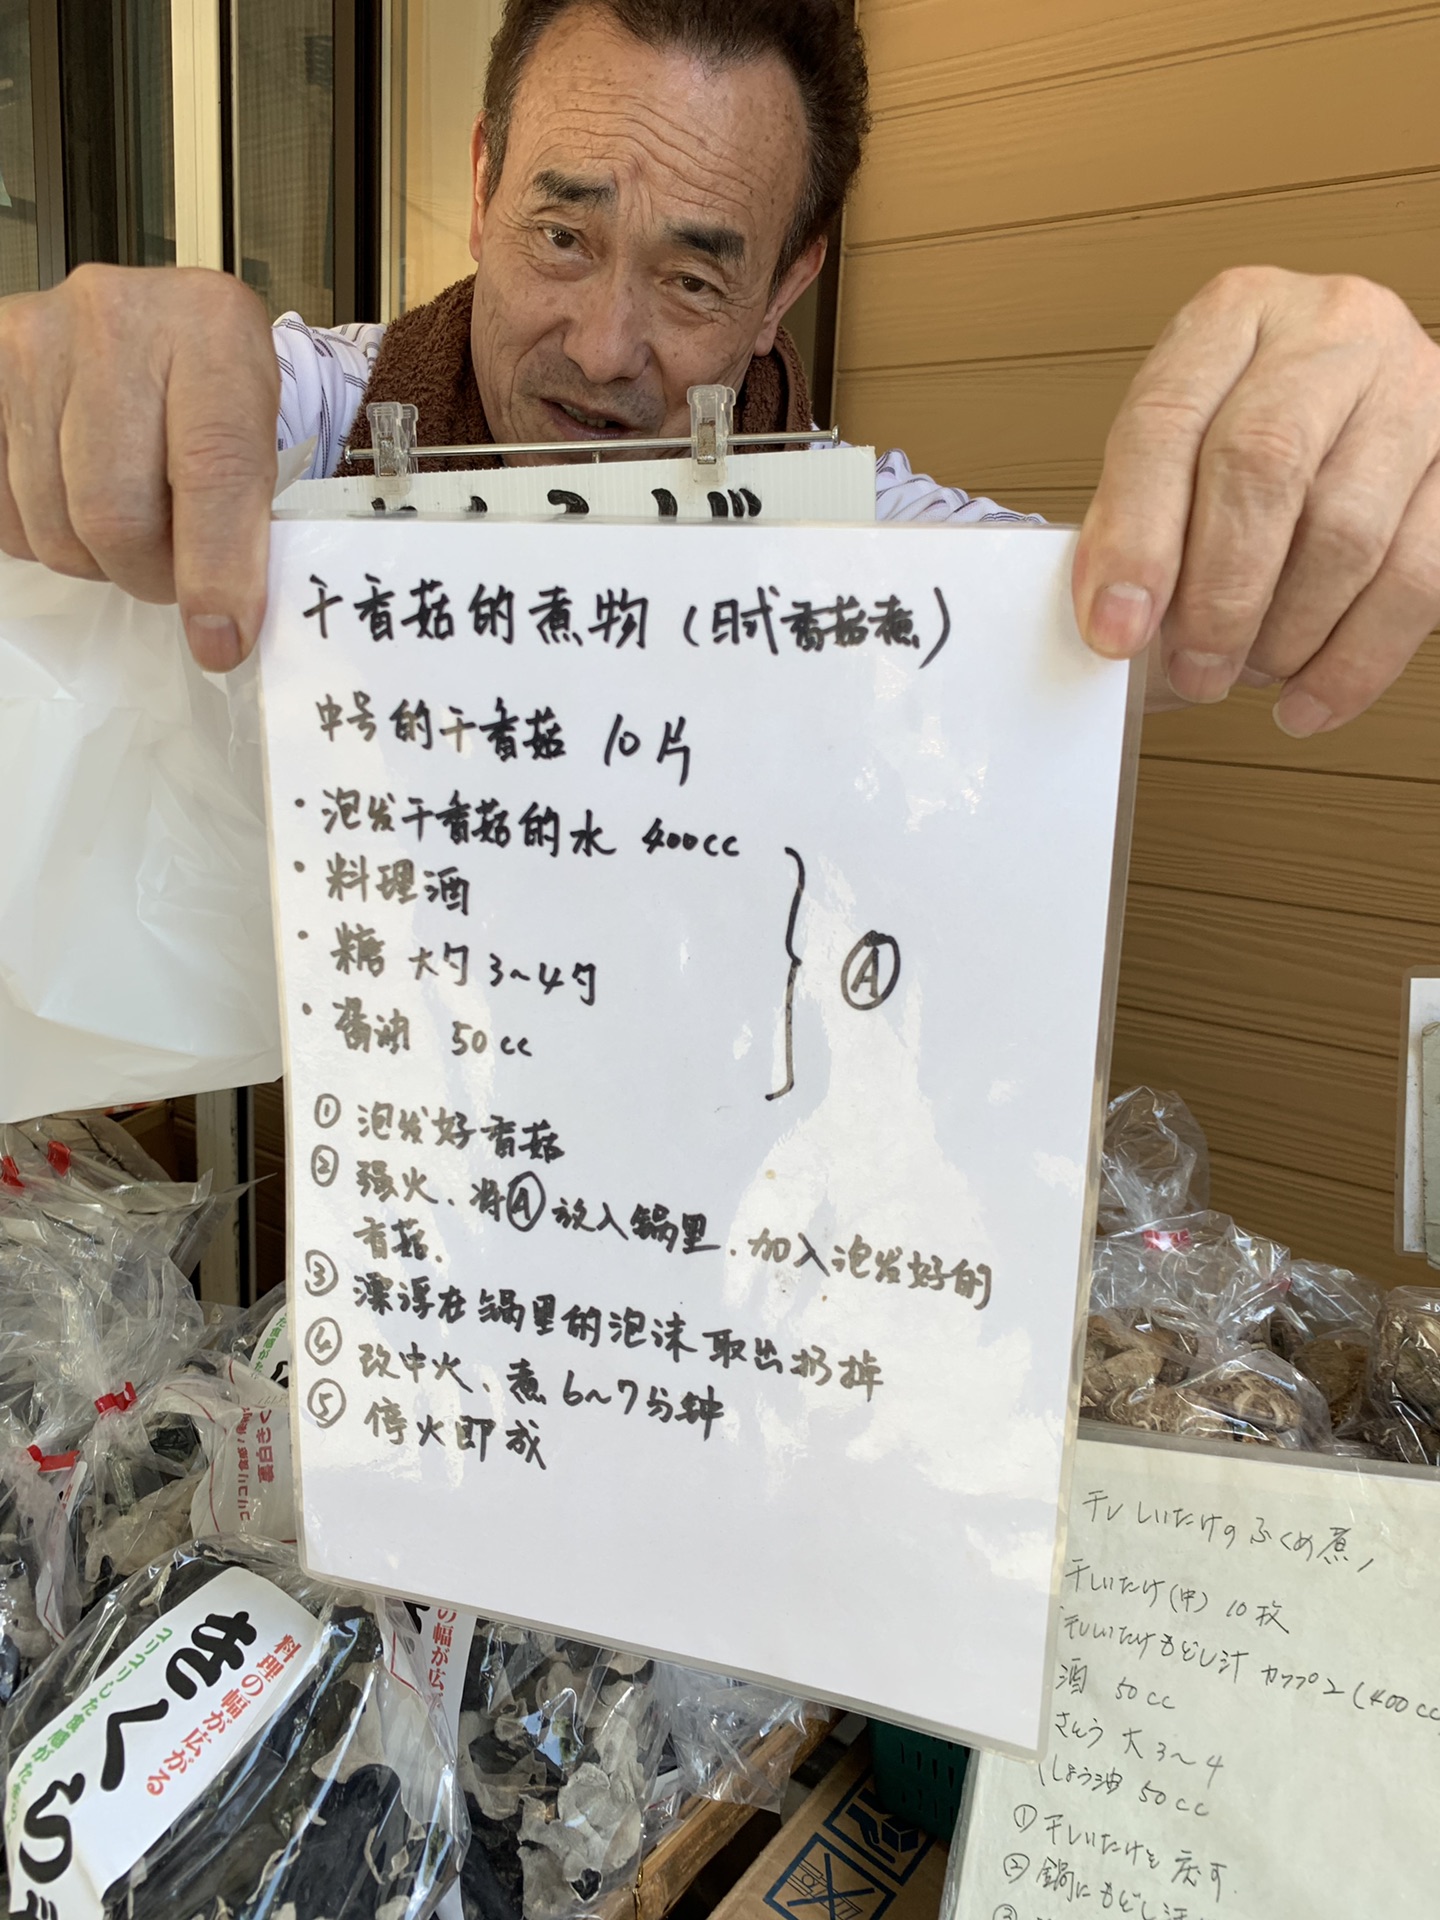 干香菇的煮物（日式香菇煮）
中号的干香菇 10片
・泡发干香菇的水 400cc
・料理酒
・糖 大勺3~4勺
・酱油 50cc
Ⓐ
① 泡发好香菇
② 强火、将Ⓐ放入锅里、加入泡发好的
香菇.
③ 漂浮在锅里的泡沫取出扔掉
④ 改中火、煮6~7分钟
⑤ 停火即成
干しいたけのふくめ煮
干しいたけ(中) 10枚
干しいたけもどし汁 カップ2(400cc
酒 50cc
さとう 大3~4
しょう油 50cc
① 干しいたけを戻す.
② 鍋にもどし汁
③
料理の幅が広がる
きくら
コリコリした食感がたま
の幅が広
た食感がた
裏白きく